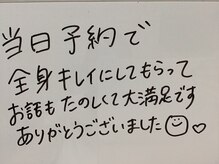 当日予約で
全身キレイにしてもらって
お話もたのしくて大満足です
ありがとうございました☺♡